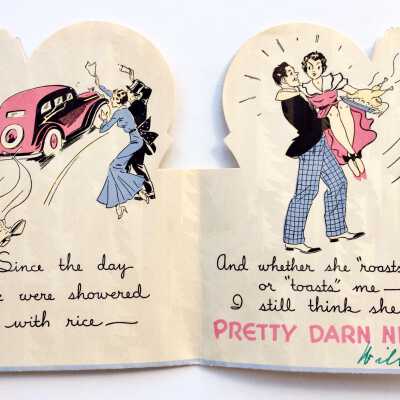 Since the day
were showered
with rice—
And whether she "roasts
or "toasts" me—
I still think she
PRETTY DARN